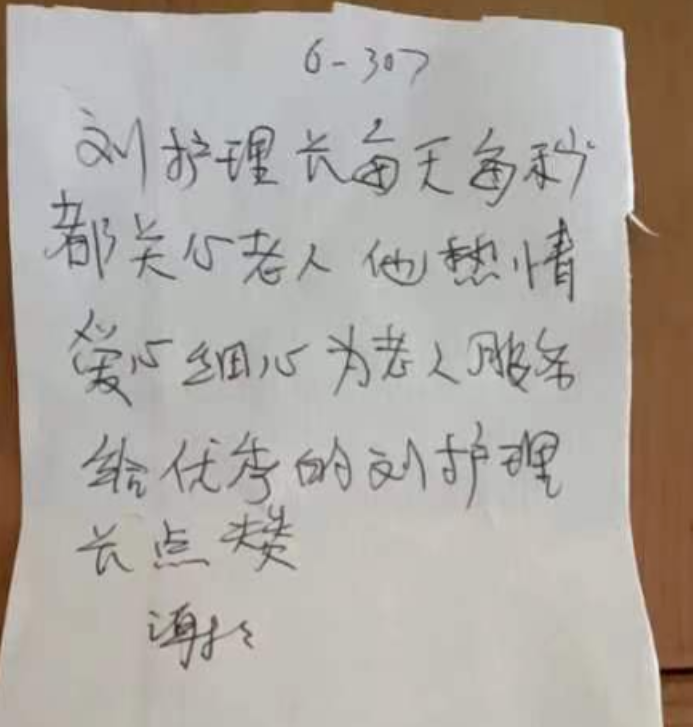 6-307
刘护理长每天每秒
都关心老人他热情
爱心细心为老人服务
给优秀的刘护理
长点赞
谢